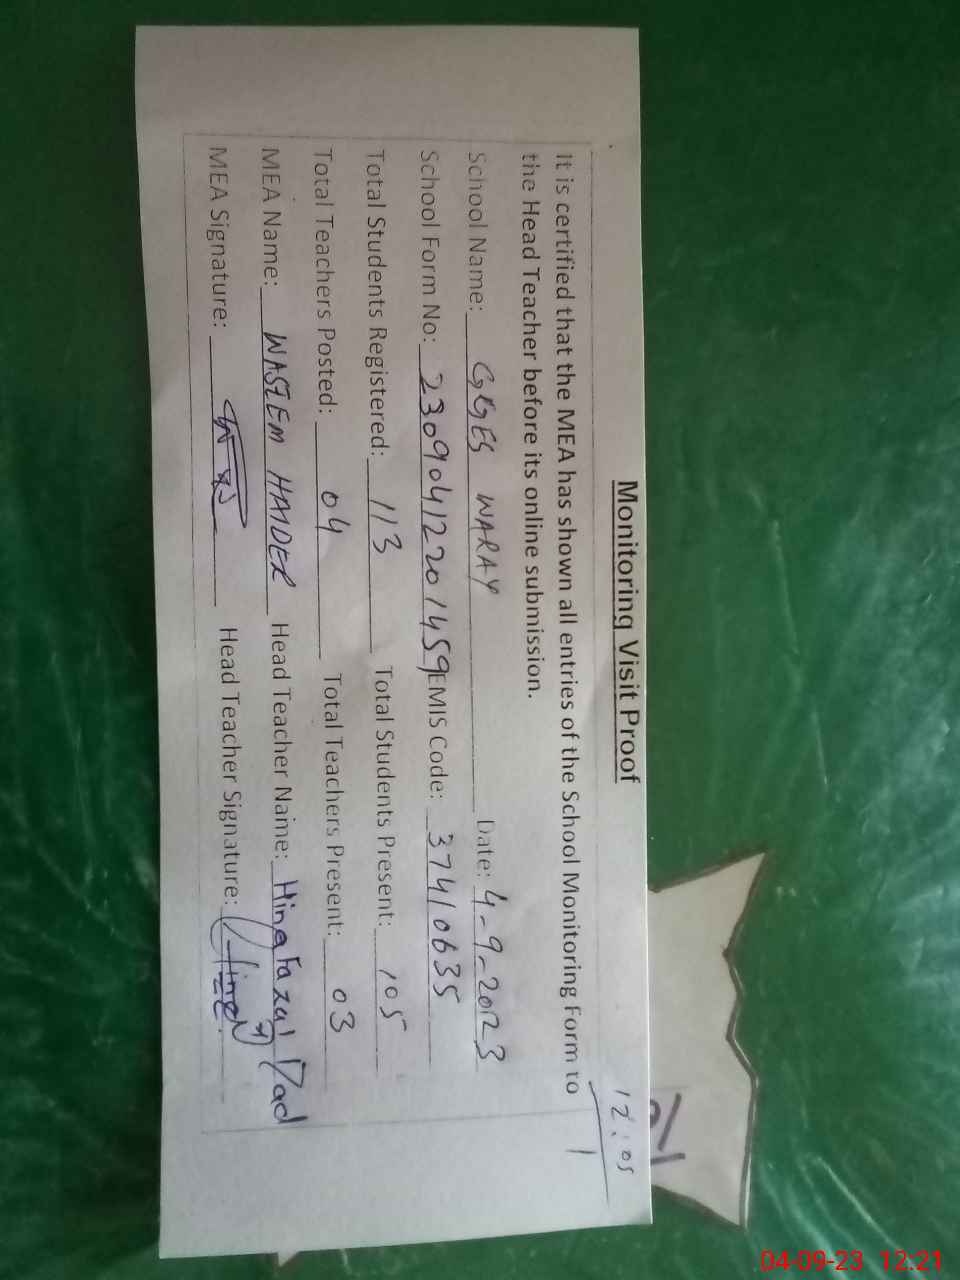 12:05
Monitoring Visit Proof
It is certified that the MEA has shown all entries of the School Monitoring Form to
the Head Teacher before its online submission.
School Name: GGES WARAY Date: 4-9-2023
School Form No: 230904122201459 EMIS Code: 37410635
Total Students Registered: 113 Total Students Present: 105
Total Teachers Posted: 04 Total Teachers Present: 03
MEA Name: WASEEM HAIDER Head Teacher Name: Hina Fazal Dad
MEA Signature: Head Teacher Signature:
04-09-23 12:21